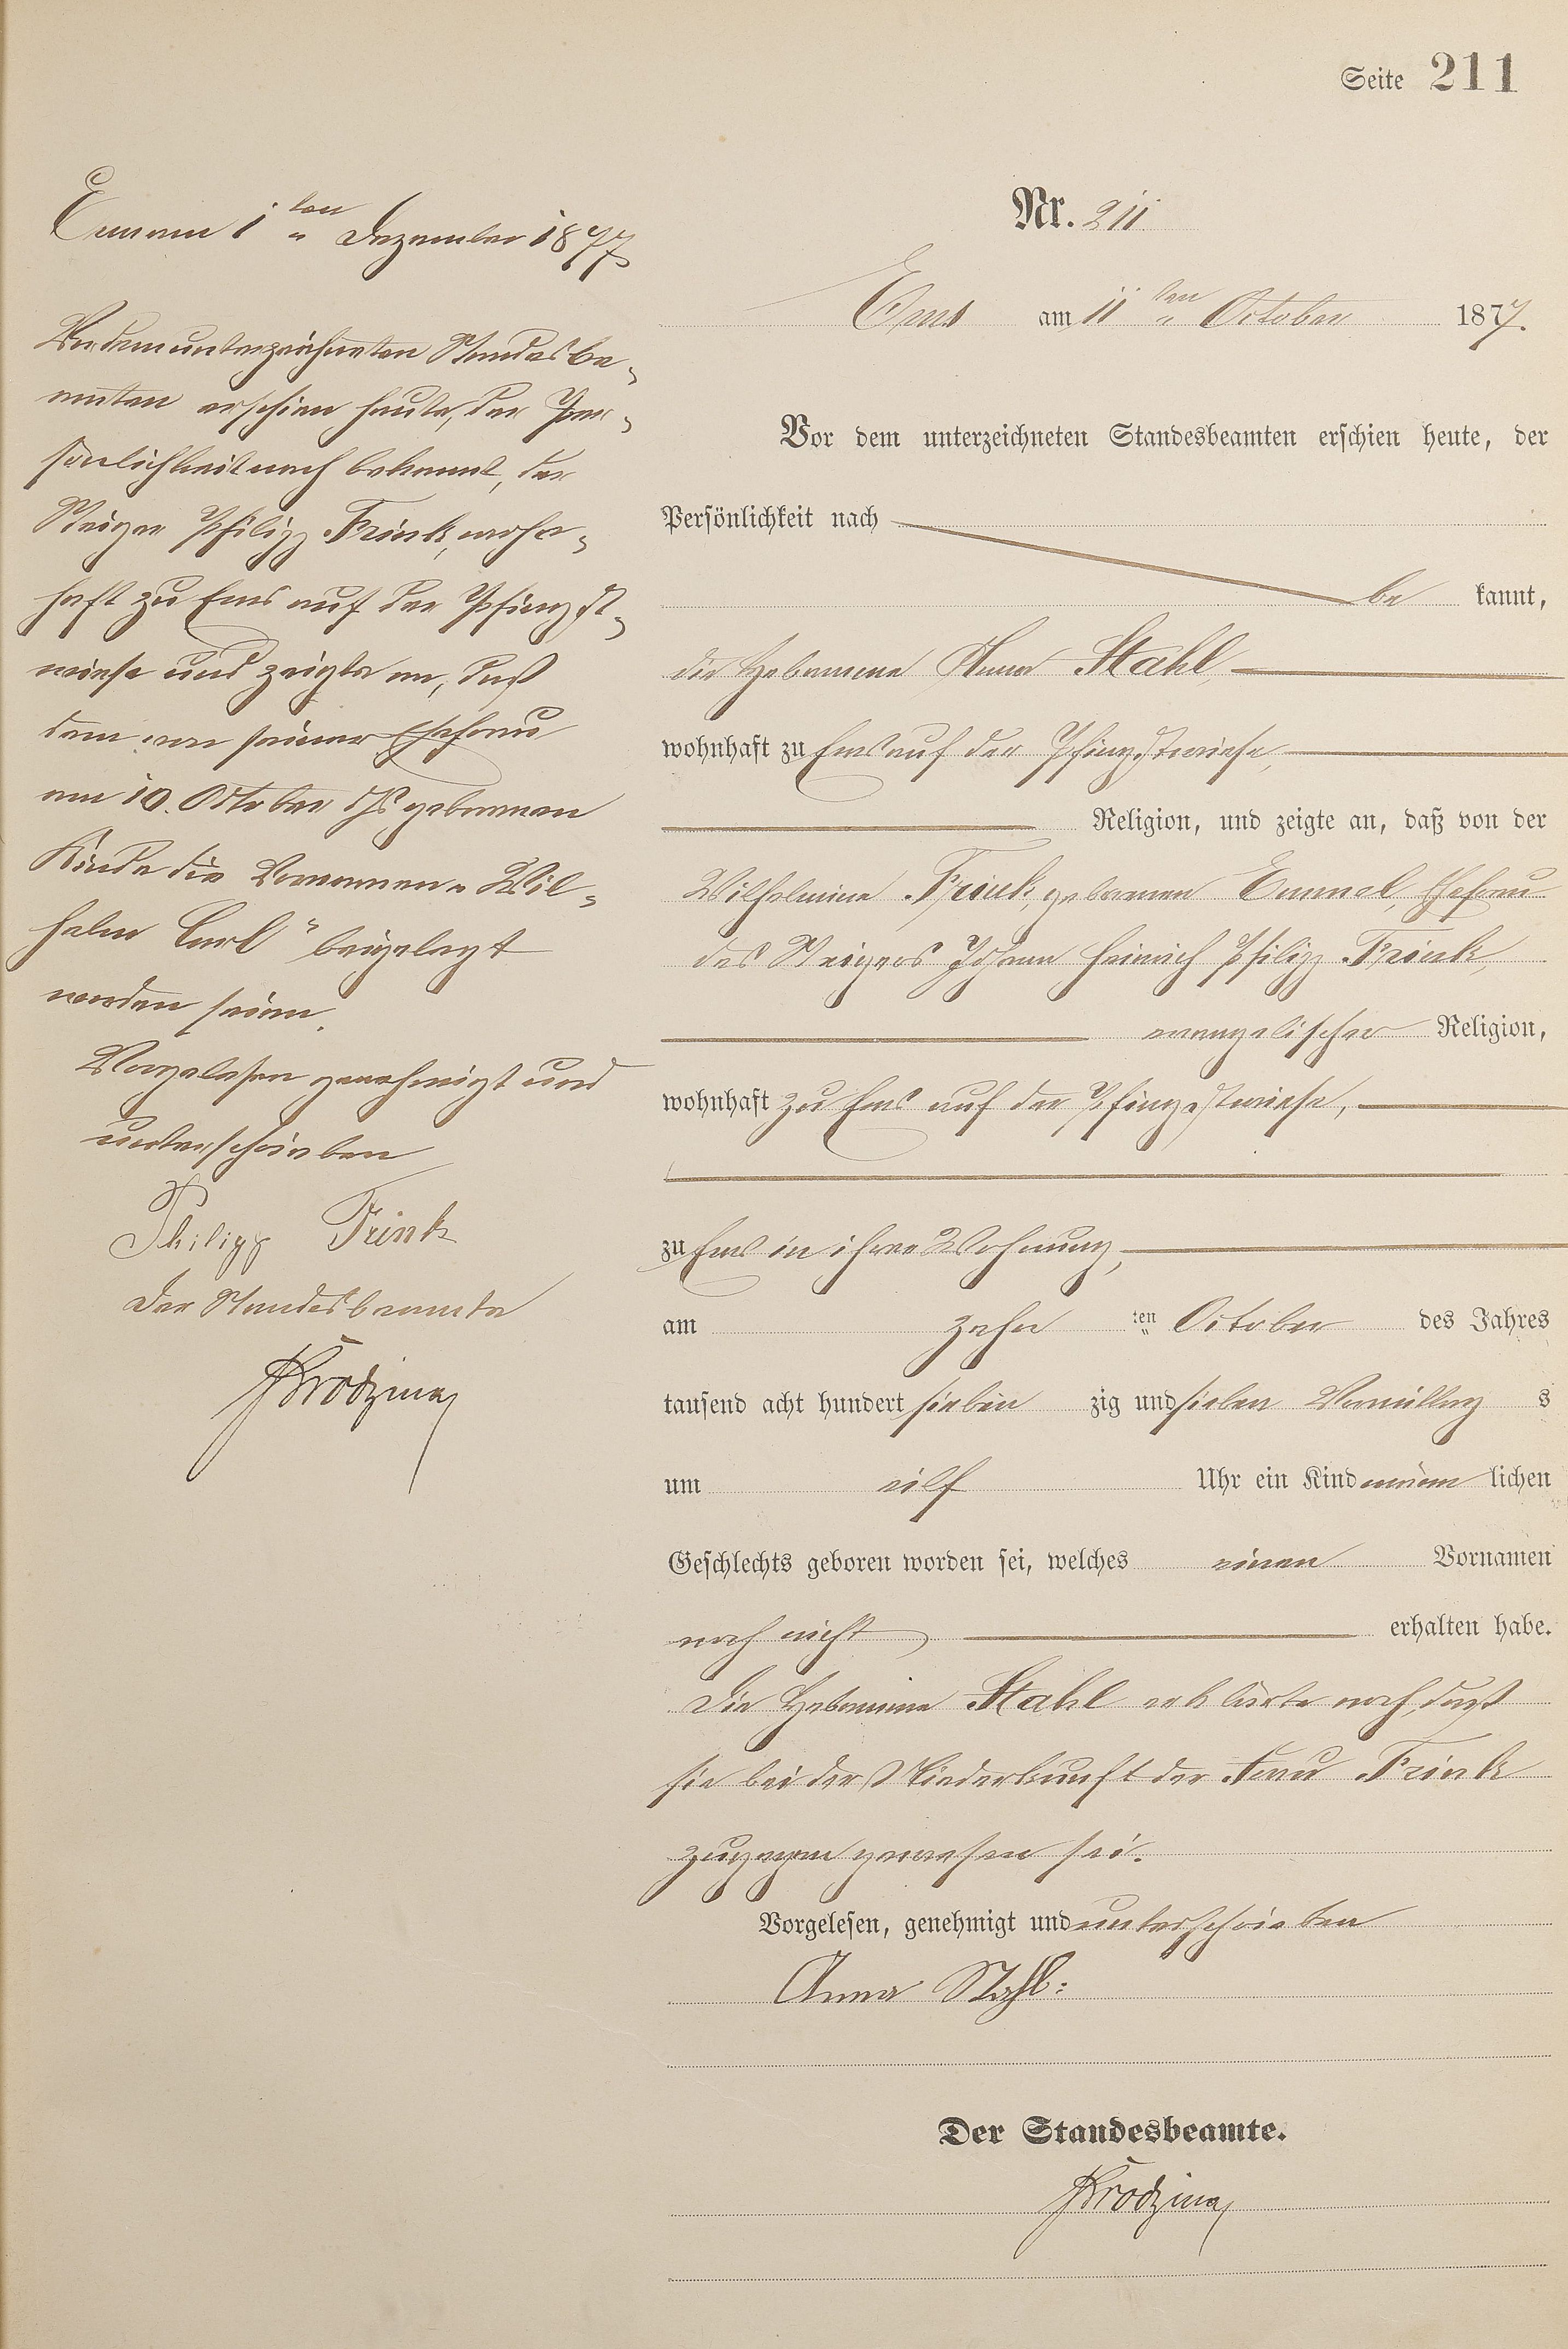 Seite 211
Nr. 211
Ems am 11ten October 1877.
Vor dem unterzeichneten Standesbeamten erschien heute, der
Persönlichkeit nach
be kannt,
die Hebamme Anna Stahl,
wohnhaft zu Ems auf der Pfingstwiese,
Religion, und zeigte an, daß von der
Wilhelmine Frink, geborenen Emmel, Ehefrau
des Steigers Johann Heinrich Philipp Frink,
evangelischer Religion,
wohnhaft zu Ems auf der Pfingstwiese,
zu Ems in ihrer Wohnung,
am zehn ten October des Jahres
tausend acht hundert sieben zig und sieben Vormittag s
um eilf Uhr ein Kind männ lichen
Geschlechts geboren worden sei, welches einen Vornamen
noch nicht erhalten habe.
Die Hebamme Stahl erklärte noch, daß
sie bei der Niederkunft der Frau Frink
zugegen gewesen sei.
Vorgelesen, genehmigt und unterschrieben
Anna Stahl:
Der Standesbeamte.
Ems am 1ten Dezember 1877
Vor dem unterzeichneten Standesbe-
amten erschien heute, der Per-
sönlichkeit nach bekannt, der
Steiger Philipp Frink, wohn-
haft zu Ems auf der Pfingst-
wiese und zeigte an, daß
dem von seiner Ehefrau
am 10. October Js geborenen
Kinde die Vornamen „Wil-
helm Carl" beigelegt
worden seien.
Vorgelesen genehmigt und
unterschrieben
Philipp Frink
Der Standesbeamte